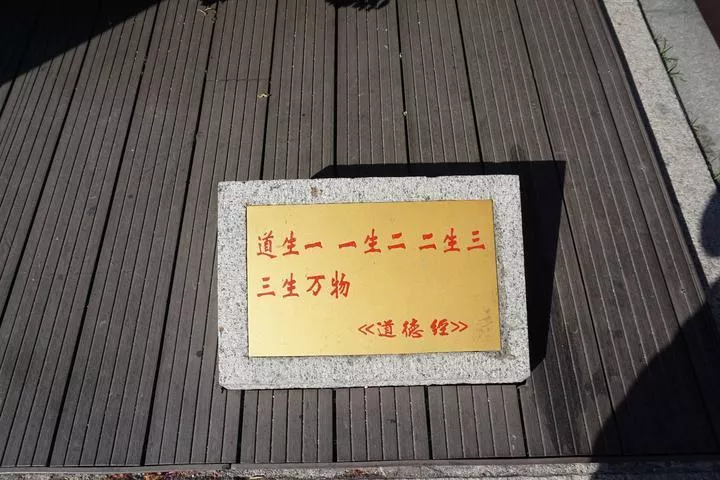 道生一 一生二 二生三
三生万物
《道德经》